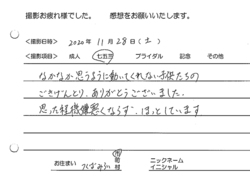 撮影お疲れ様でした。 感想をお願いいたします。
<撮影日時> 2020年11月28日(土)
<撮影項目> 成人 七五三 ブライダル 記念 その他
なかなか思うように動いてくれない子供たちの
ごきげんとり、ありがとうございました。
思った程機嫌悪くならず、ほっとしています
お住まい つくばみらい 市 町 村 ニックネーム イニシャル